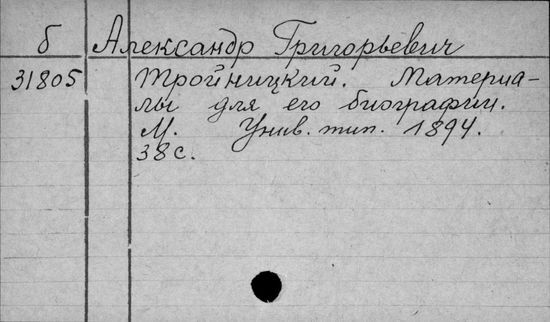 б Александр Григорьевич
31805 Тройницкий. Материа-
лы для его биографии.
М. Унив. тип. 1894.
38 с.